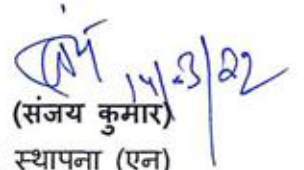 14/3/22
(संजय कुमार)
स्थापना (एन)